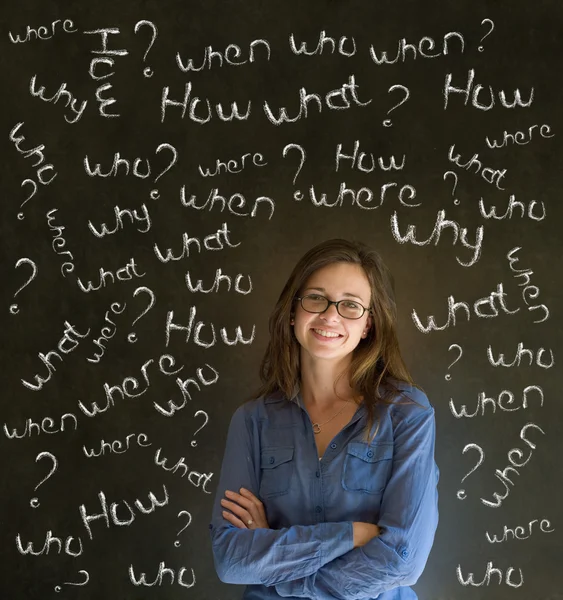 where How ? when who when ?
why How what ? How
where
who who ? where ? How what
? when where who
where why why
what
? what who when
? what
what where How ?
where who ? who
when when
where ?
what ? when
?
How
? where
who
? who who